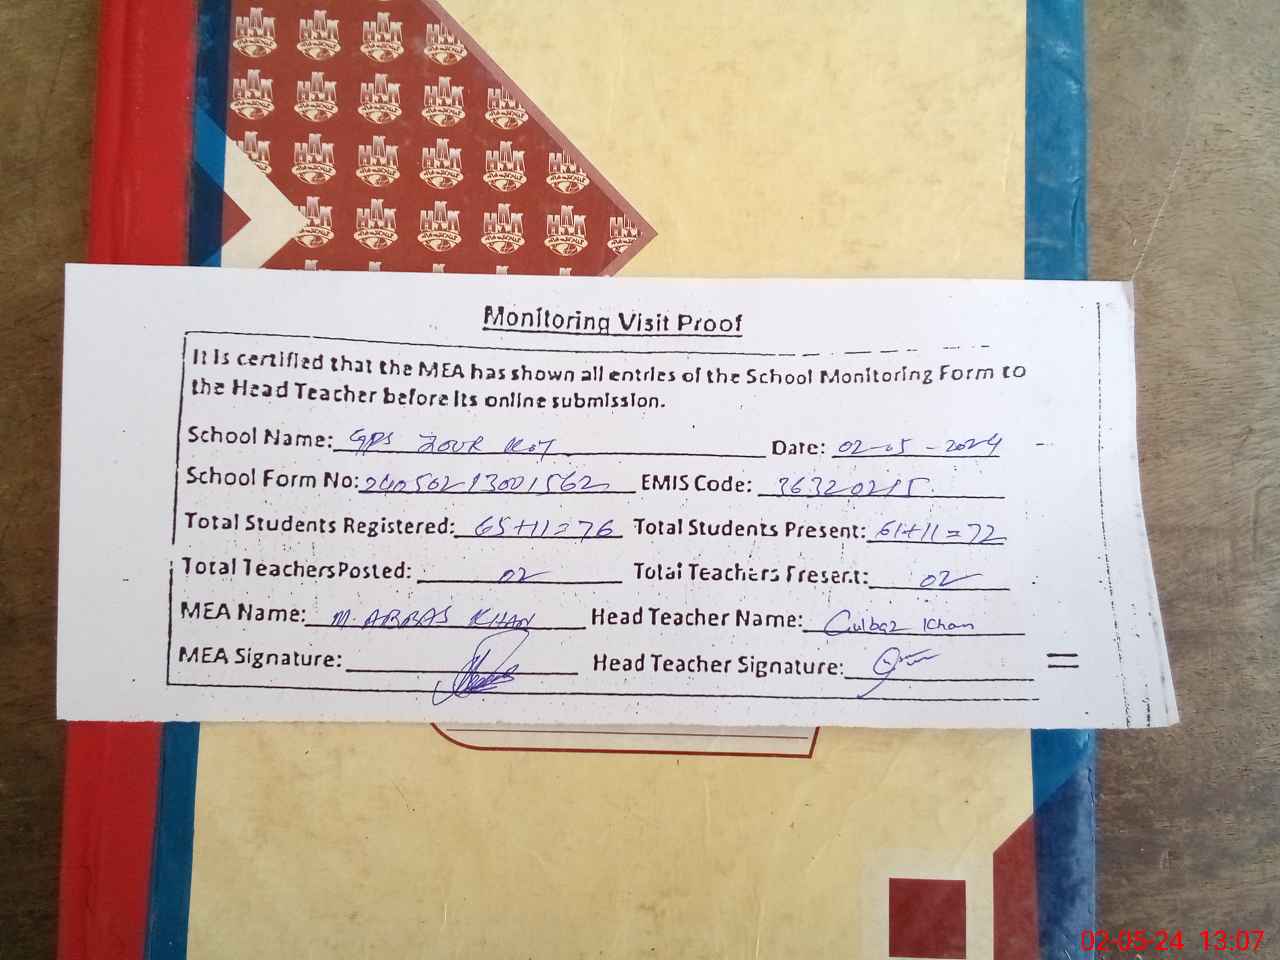 Monitoring Visit Proof
It is certified that the MEA has shown all entries of the School Monitoring Form to
the Head Teacher before its online submission.
School Name: GPS ZOUR KOT Date: 02-05-2024
School Form No: 24050213001562 EMIS Code: 36320215
Total Students Registered: 65+11=76 Total Students Present: 61+11=72
Total Teachers Posted: 02 Total Teachers Present: 02
MEA Name: M. ABBAS KHAN Head Teacher Name: Gulbaz Khan
MEA Signature: Head Teacher Signature:
02-05-24 13:07